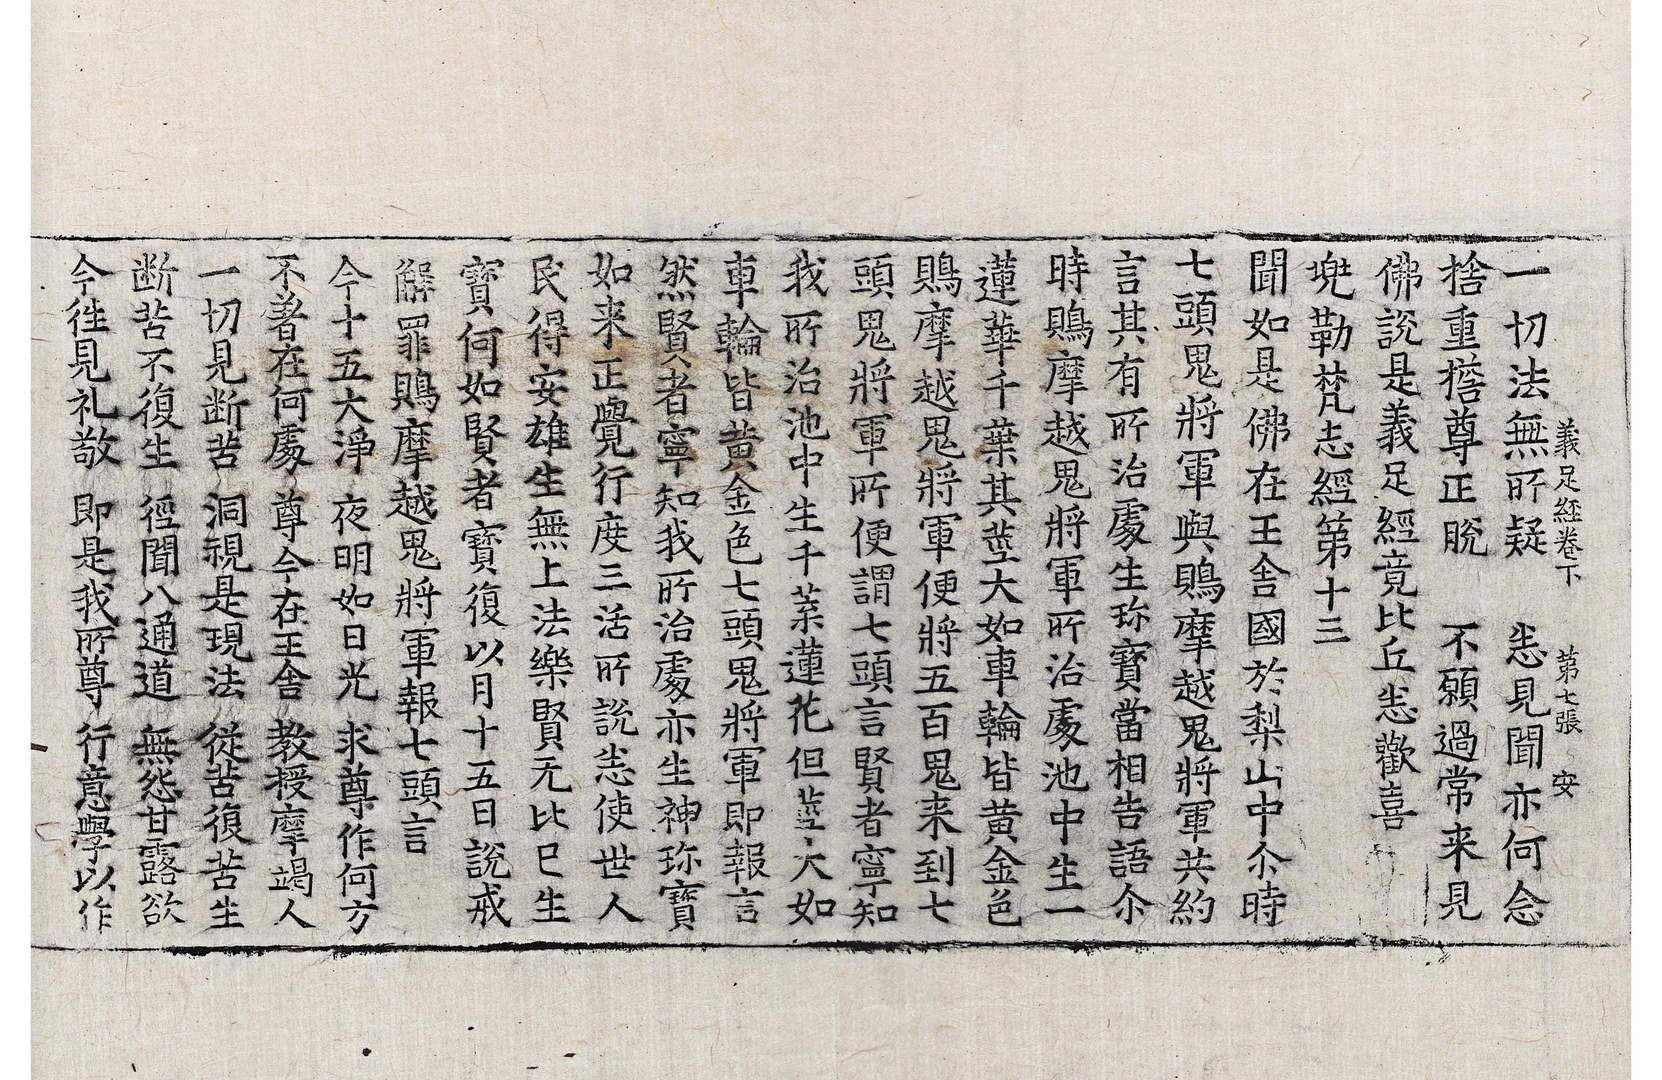 義足經卷下　第七張　安
一切法無所疑　悉見聞亦何念
捨重擔尊正脫　不願過常来見
佛說是義足經竟比丘悉歡喜
兜勒梵志經第十三
聞如是佛在王舍國於梨山中尒時
七頭鬼將軍與鵙摩越鬼將軍共約
言其有所治處生珎寶當相告語尒
時鵙摩越鬼將軍所治處池中生一
蓮華千葉其莖大如車輪皆黃金色
鵙摩越鬼將軍便將五百鬼来到七
頭鬼將軍所便謂七頭言賢者寧知
我所治池中生千葉蓮花但莖大如
車輪皆黃金色七頭鬼將軍即報言
然賢者寧知我所治處亦生神珎寶
如来正覺行度三活所說悉使世人
民得安雄生無上法樂賢无比已生
寶何如賢者寶復以月十五日說戒
解罪鵙摩越鬼將軍報七頭言
今十五大淨　夜明如日光　求尊作何方
不著在何處　尊今在王舍　教授摩竭人
一切見断苦　洞視是現法　從苦復苦生
断苦不復生　徑聞八通道　無怨甘露欲
今徃見礼敬　即是我所尊　行意學以作